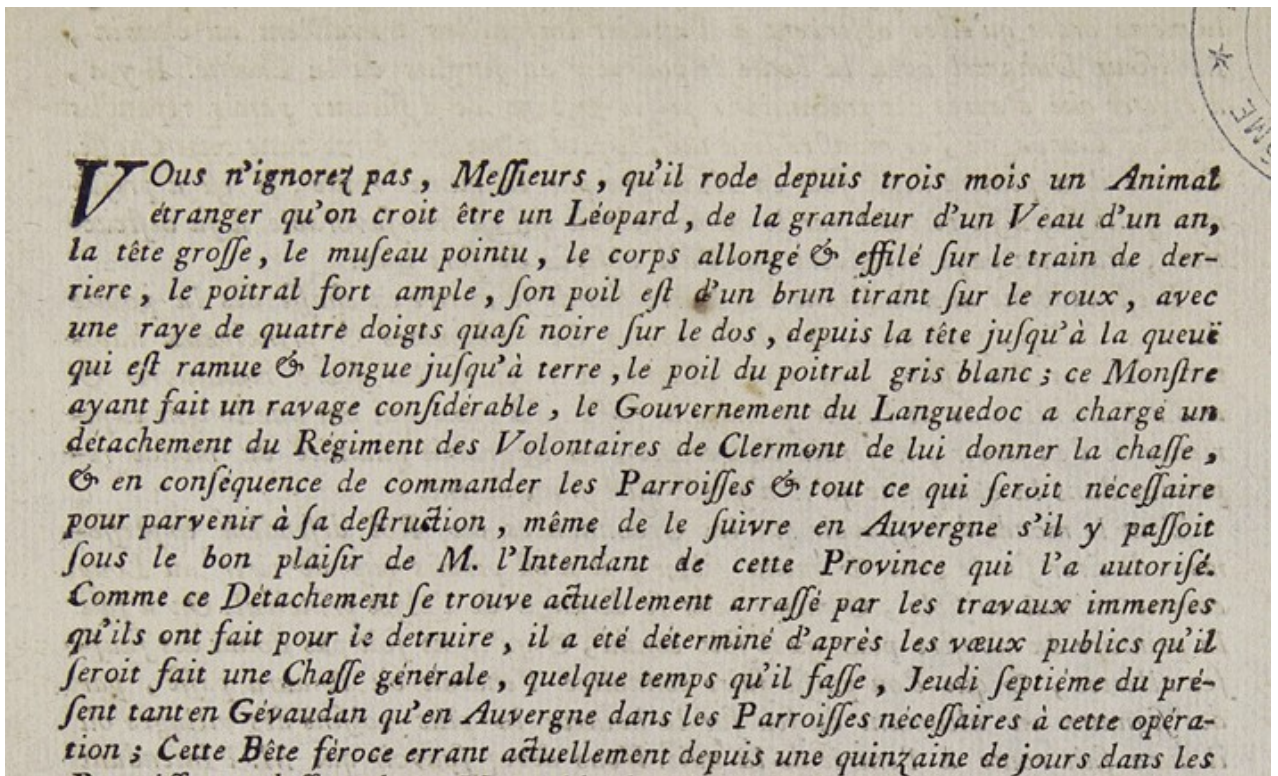 VOus n'ignorez pas, Meſſieurs, qu'il rode depuis trois mois un Animal
étranger qu'on croit être un Léopard, de la grandeur d'un Veau d'un an,
la tête groſſe, le muſeau pointu, le corps allongé & effilé ſur le train de der-
riere, le poitral fort ample, ſon poil eſt d'un brun tirant ſur le roux, avec
une raye de quatre doigts quaſi noire ſur le dos, depuis la tête juſqu'à la queuë
qui eſt ramue & longue juſqu'à terre, le poil du poitral gris blanc; ce Monſtre
ayant fait un ravage conſidérable, le Gouvernement du Languedoc a chargé un
détachement du Régiment des Volontaires de Clermont de lui donner la chaſſe,
& en conſéquence de commander les Parroiſſes & tout ce qui ſeroit néceſſaire
pour parvenir à ſa deſtruction, même de le ſuivre en Auvergne s'il y paſſoit
ſous le bon plaiſir de M. l'Intendant de cette Province qui l'a autoriſé.
Comme ce Détachement ſe trouve actuellement arraſſé par les travaux immenſes
qu'ils ont fait pour le detruire, il a été déterminé d'après les vœux publics qu'il
ſeroit fait une Chaſſe générale, quelque temps qu'il faſſe, Jeudi ſeptiéme du pré-
ſent tant en Gévaudan qu'en Auvergne dans les Parroiſſes néceſſaires à cette opéra-
tion; Cette Bête féroce errant actuellement depuis une quinzaine de jours dans les